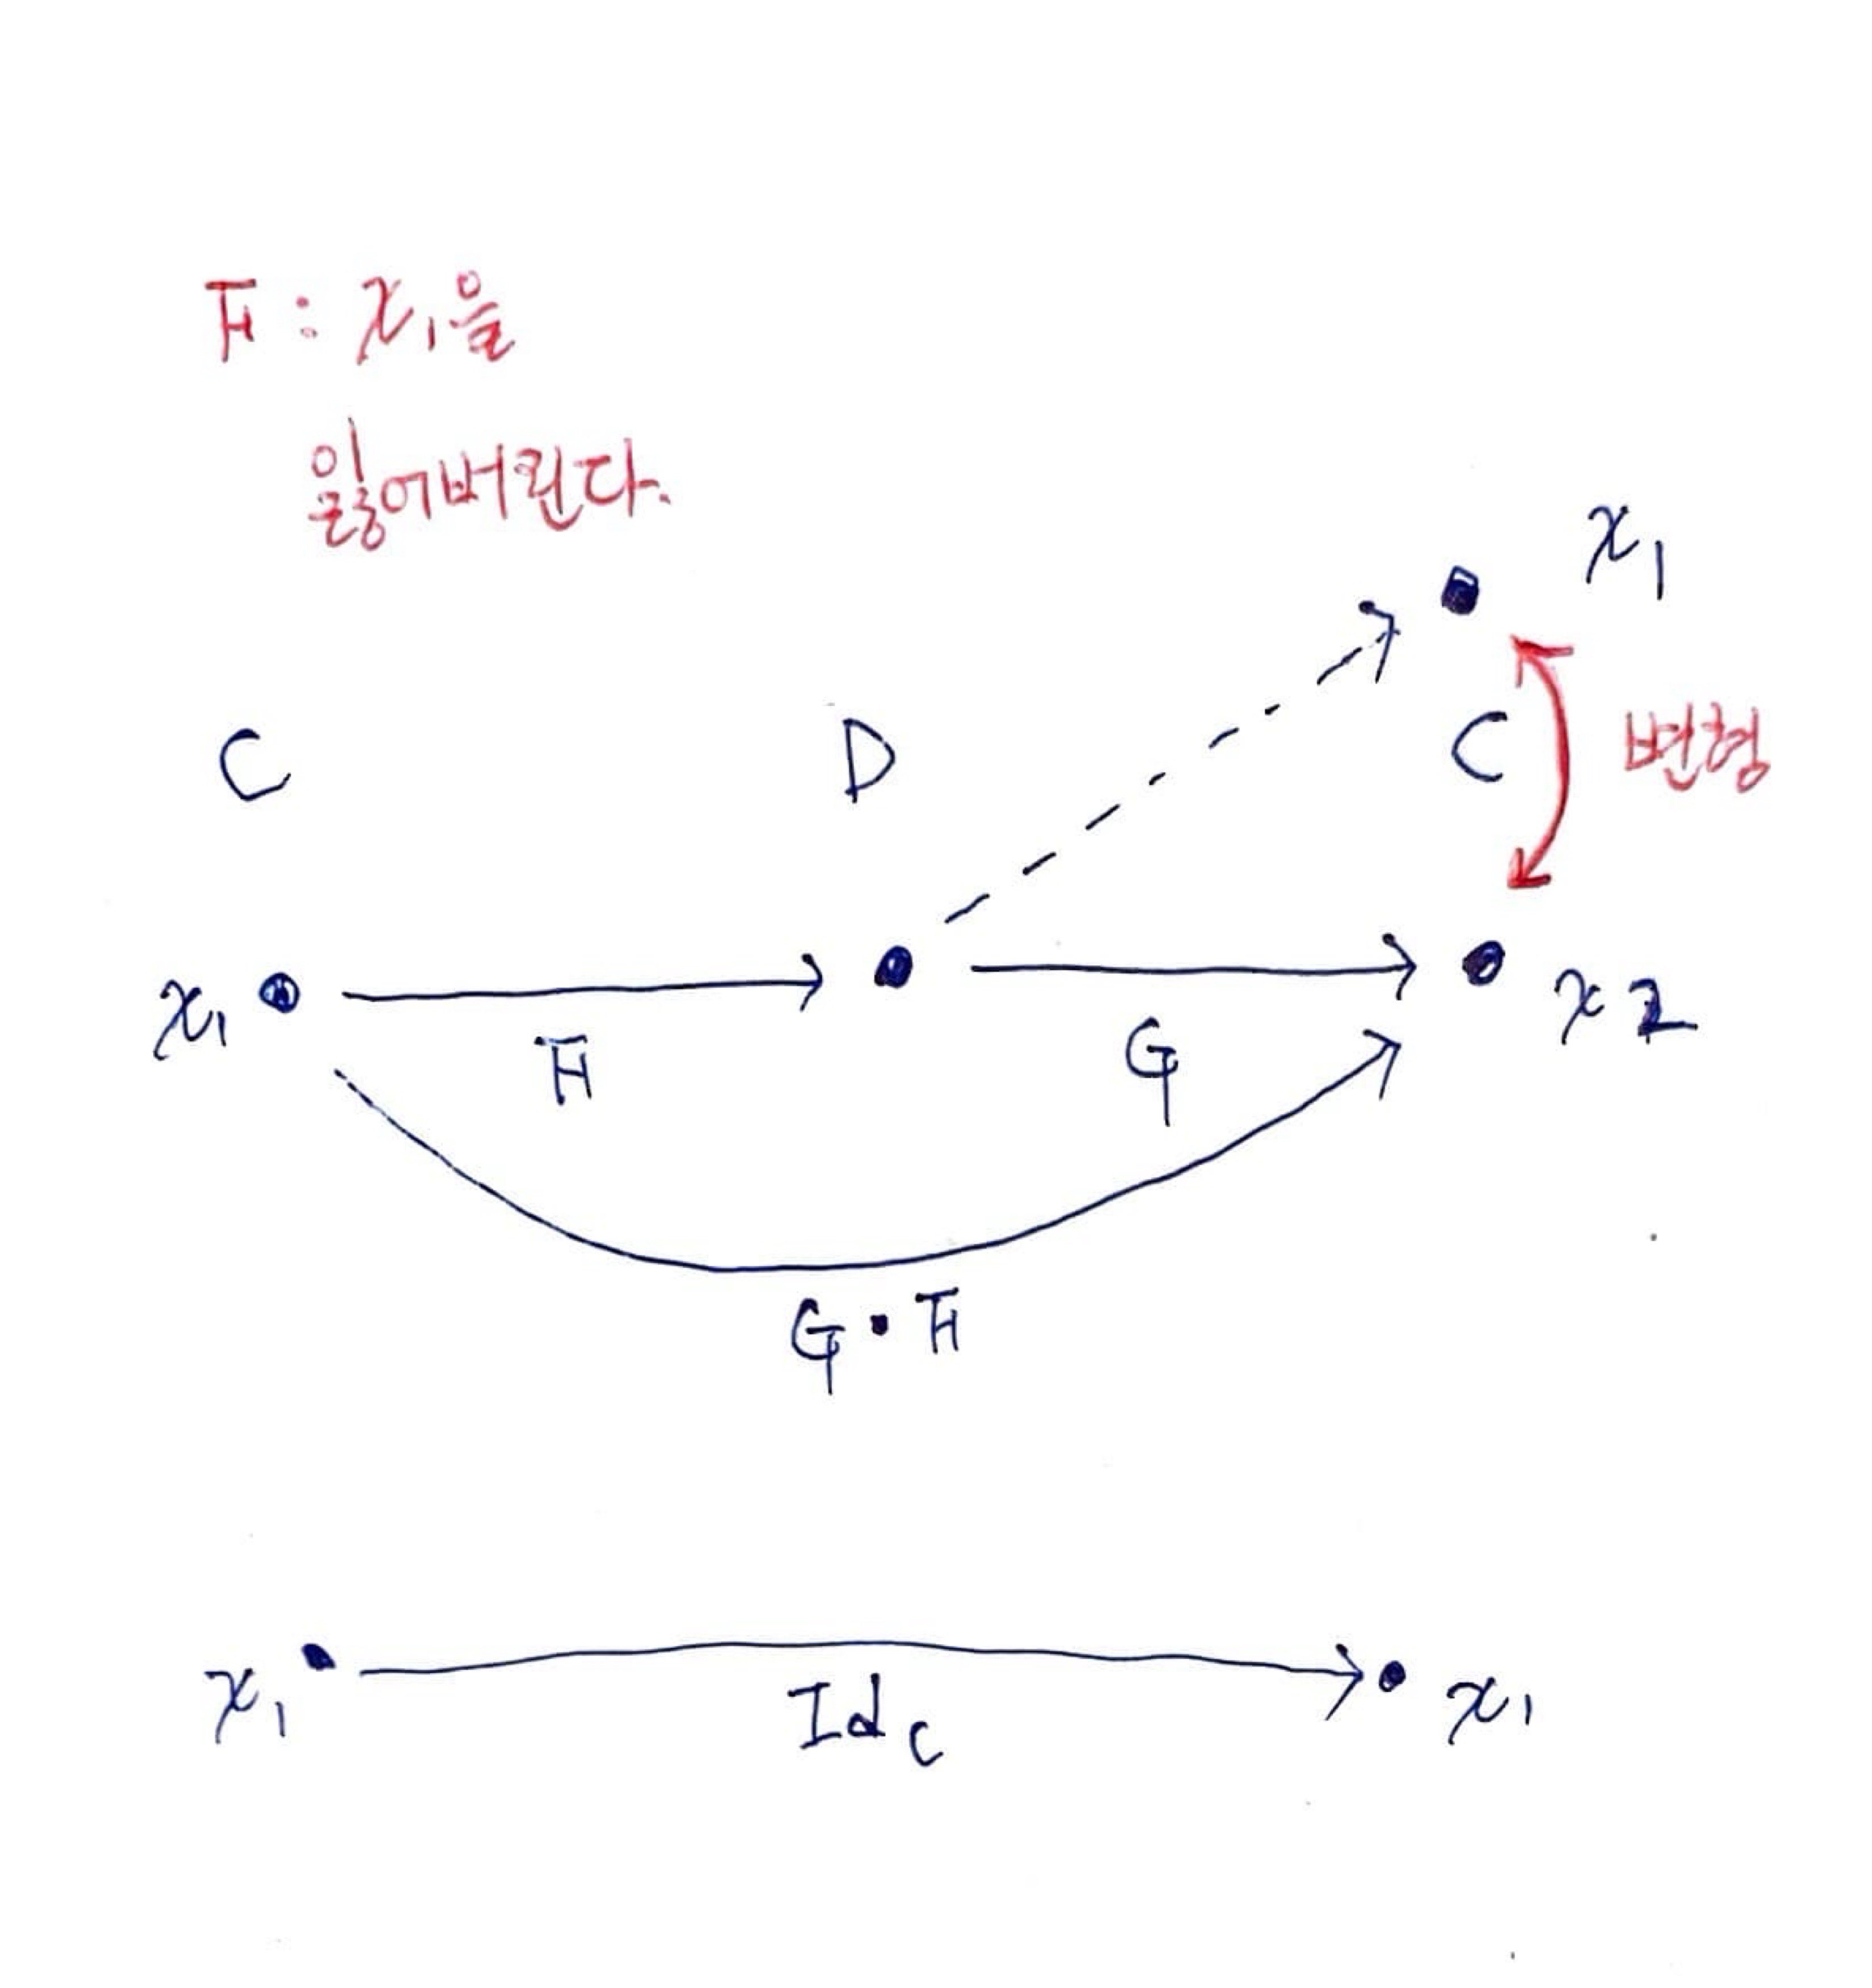 F : x₁을
잃어버린다.
x₁
C D C 변형
x₁ F G x2
G • F
x₁ Id_C x₁